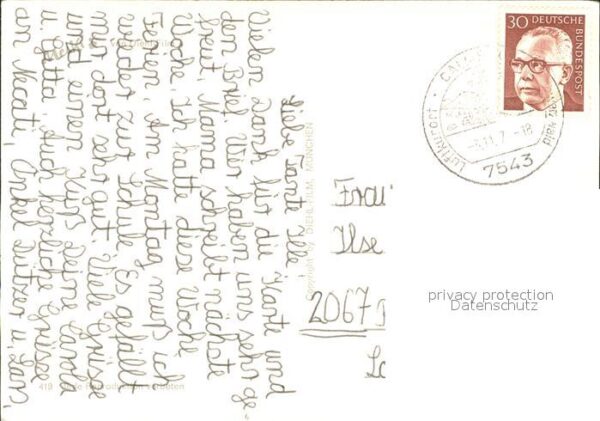 Liebe Tante Ilse!
Vielen Dank für die Karte und
den Brief. Wir haben uns sehr ge-
freut. Mama schreibt nächste
Woche. Ich hatte diese Woche
Ferien. Am Montag muß ich
wieder zur Schule. Es gefällt
mir dort sehr gut. Viele Grüße
und einen Kuß Deine Carola
u. Jutta, auch herzliche Grüße
an Onkel
Copyright by DIEHL-FILM, MÜNCHEN
419
Reproduktion verboten
Frau
Ilse
2067
30 DEUTSCHE BUNDESPOST
Luftkurort
7543
privacy protection
Datenschutz